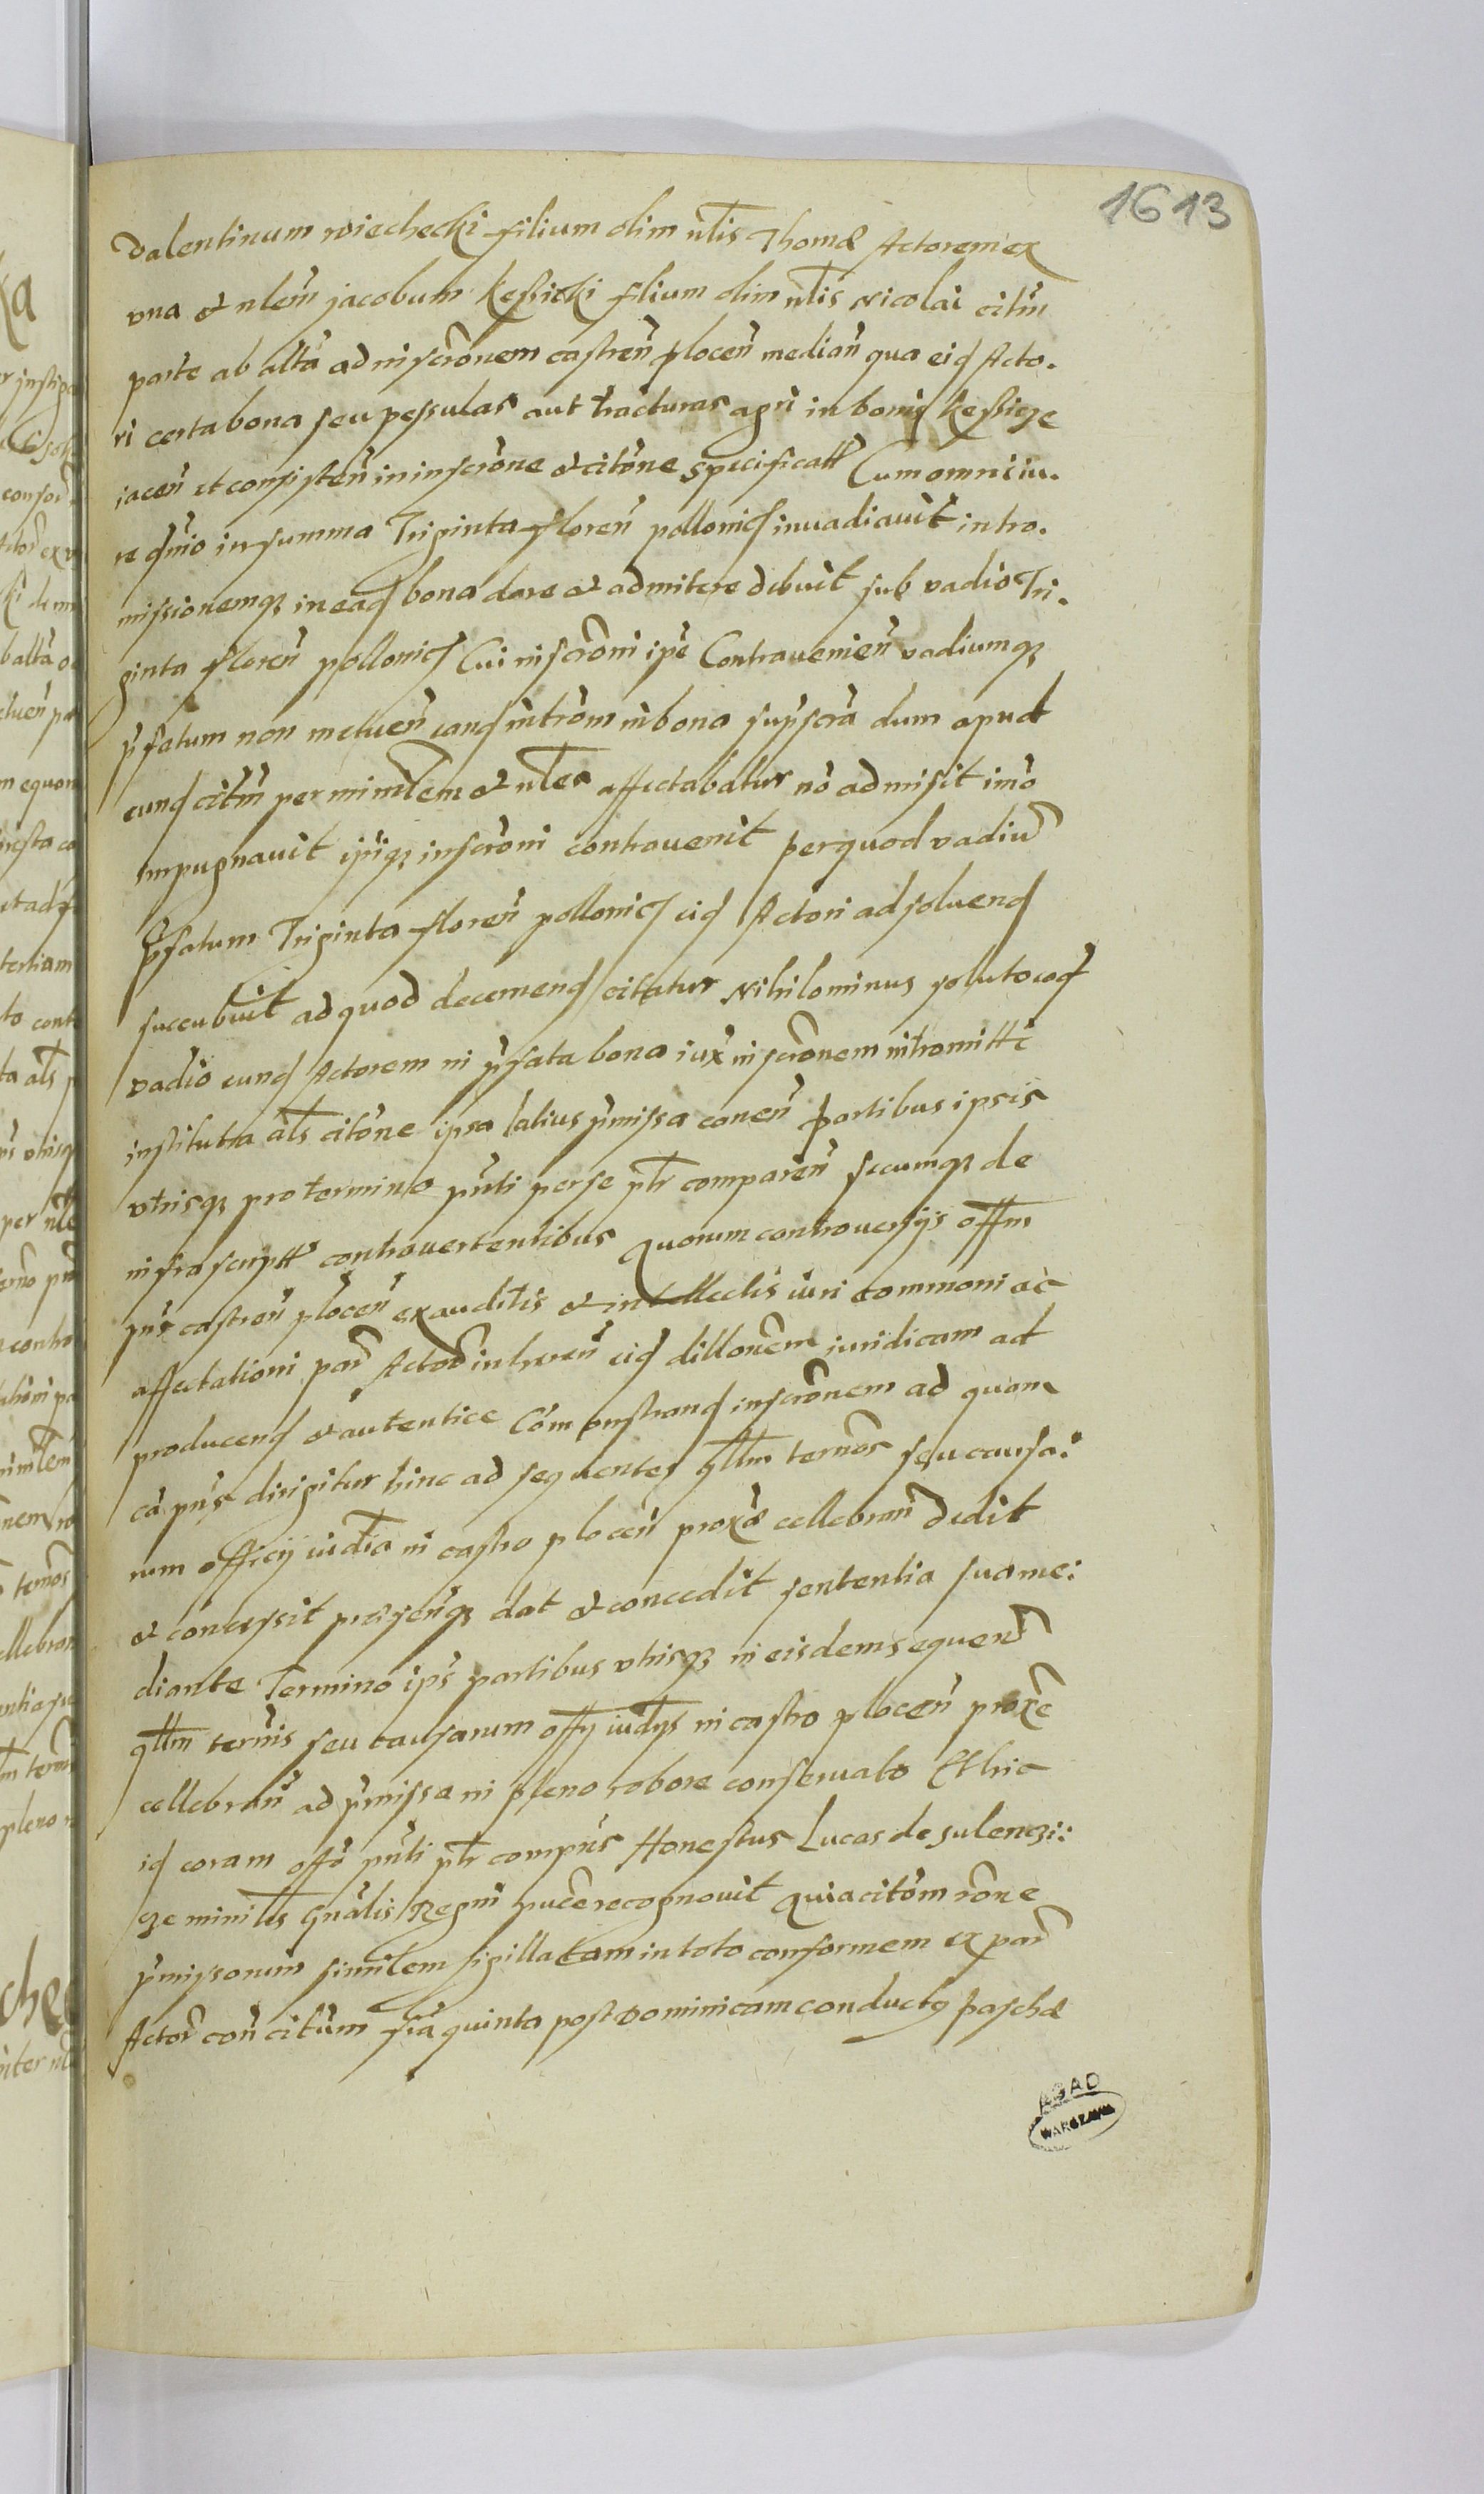 1613
Valentinum wiechecki filium olim nlis Thomæ Actorem ex
vna et nlem jacobum kessicki filium olim nlis Nicolai citm
parte ab altà ad inscrònem castreñ ploceñ mediañ qua eid Acto.
ri certa bona seu pessulas aut tracturas agri in bonis kessicze
iaceñ et consisteñ in inscròne et citòne specificatt Cum omni iu.
re dnio in summa Triginta floreñ pollonic inuadiauit intro.
missionemq in ead bona dare et admitere debuit sub vadio Tri.
ginta floreñ pollonic Cui inscròni ipe Contraueneñ vadiumq
pfatum non metueñ eand intròm in bona supscrà dum apud
eund citm per minrlem et nles affectabatur nò admisit imò
impugnauit ipiq inscròni contrauenit per quod vadiu
pfatum Triginta floreñ pollonic eid Actori ad soluend
succubuit ad quod decernend citatur Nihilominus soluto eod
vadio eund Actorem in pfata bona iux inscrònem intromitti
instituta als citòne ipsa latius pmissa coneñ partibus ipsis
vtrisq pro termino pnti per se ptr compareñ secumq de
infrascriptt controuertentibus Quorum controuersijs offm
pns castreñ ploceñ exauditis et intellectis iuri commoni ac
affectationi par Actor inhereñ eid dillònem iuridicam ad
producend et autentice Còmonstrand inscrònem ad quam
cà pns dirigitur hinc ad sequentes qllm termos seu causa:
rum officij iudia in castro ploceñ proxæ cellebrañ dedit
et concessit præseñq dat et concedit sententia sua me:
diante Termino ips partibus vtrisq in eisdem sequeñ
qllm termis seu causarum offij iudijs in castro ploceñ proxe
cellebrañ ad pmissa in pleno robore conseruato Et hic
id coram offò pnti ptr compns Honestus Lucas de sulenczi:
cze minrlis Gnalis Regni pucè recognouit Quia citòm ròne
pmissorum similem sigillatam in toto conformem ex par
Actor còn citum fià quinta post Dominicam conductq paschæ
AGAD
WARSZAWA